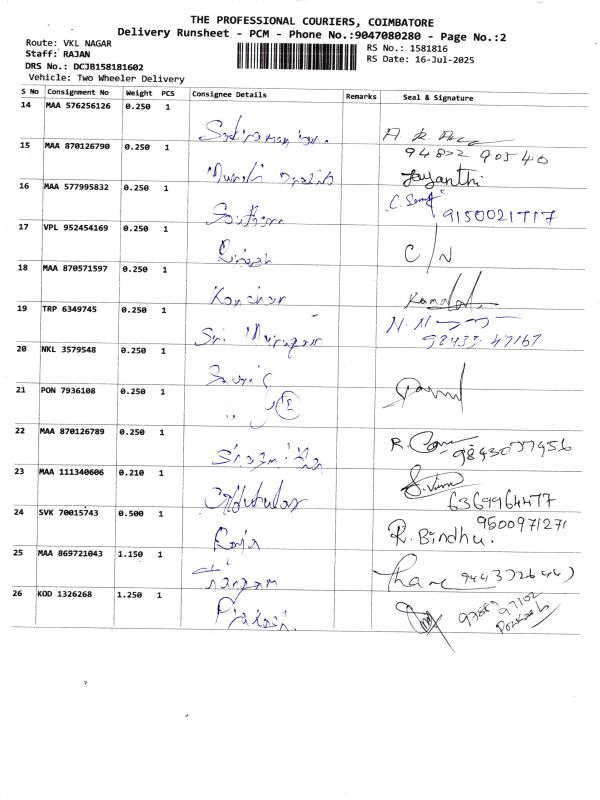 THE PROFESSIONAL COURIERS, COIMBATORE
Delivery Runsheet - PCM - Phone No.:9047080280 - Page No.:2
Route: VKL NAGAR
RS No.: 1581816
Staff: RAJAN
RS Date: 16-Jul-2025
DRS No.: DCJB158181602
Vehicle: Two Wheeler Delivery
S No Consignment No Weight PCS Consignee Details Remarks Seal & Signature
14 MAA 576256126 0.250 1
15 MAA 870126790 0.250 1 94822 90540
Jayanthi
16 MAA 577995832 0.250 1
Southern 9150021717
17 VPL 952454169 0.250 1
Dinesh C/N
18 MAA 870571597 0.250 1
19 TRP 6349745 0.250 1
Sri Murugan 98433 47167
20 NKL 3579548 0.250 1
21 PON 7936108 0.250 1
22 MAA 870126789 0.250 1
9843077456
23 MAA 111340606 0.210 1
6369964477
24 SVK 70015743 0.500 1 9500971271
Raja R. Bindhu.
25 MAA 869721043 1.150 1
26 KOD 1326268 1.250 1
Prakash